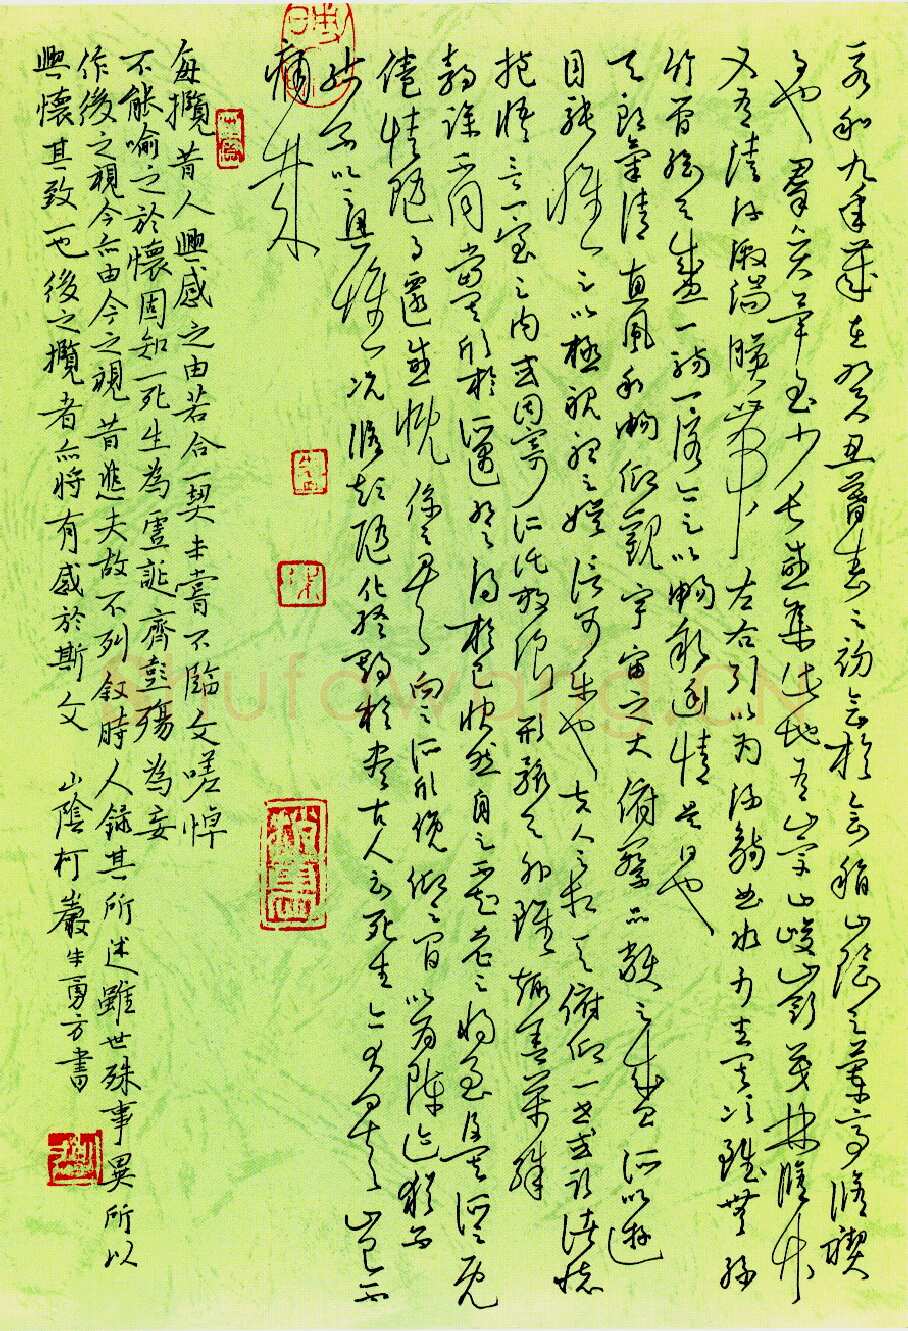 永和九年歲在癸丑暮春之初會於會稽山陰之蘭亭脩禊
事也羣賢畢至少長咸集此地有崇山峻嶺茂林脩竹
又有清流激湍映帶左右引以為流觴曲水列坐其次雖無絲
竹管絃之盛一觴一詠亦足以暢敘幽情是日也
天朗氣清惠風和暢仰觀宇宙之大俯察品類之盛所以遊
目騁懷足以極視聽之娛信可樂也夫人之相與俯仰一世或取諸懷
抱悟言一室之內或因寄所託放浪形骸之外雖趣舍萬殊
靜躁不同當其欣於所遇暫得於己快然自足不知老之將至及其所之既
倦情隨事遷感慨係之矣向之所欣俛仰之間以為陳迹猶不
能不以之興懷況脩短隨化終期於盡古人云死生亦大矣豈不
痛哉
每攬昔人興感之由若合一契未嘗不臨文嗟悼
不能喻之於懷固知一死生為虛誕齊彭殤為妄
作後之視今亦由今之視昔悲夫故不列叙時人錄其所述雖世殊事異所以
興懷其致一也後之攬者亦將有感於斯文 山陰柯巖牛勇方書
Shufawang.CN